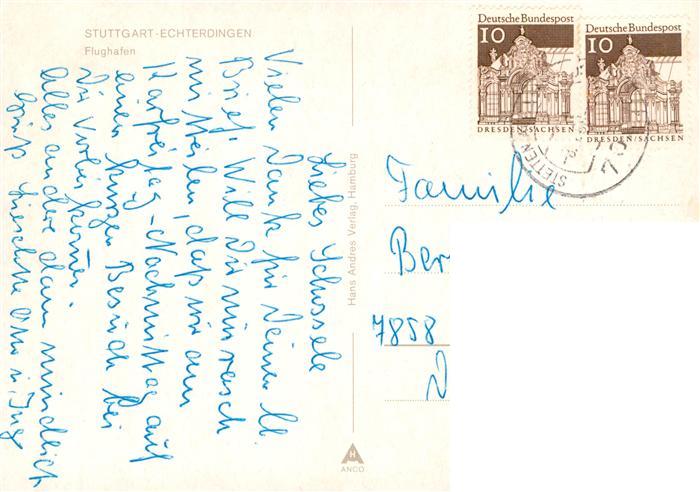 STUTTGART-ECHTERDINGEN
Flughafen
Liebes Schussele
Vielen Dank für Deinen lb
Brief. Will Dir nur rasch
mitteilen, daß wir am
Karfreitag-Nachmittag auf
einen kurzen Besuch bei
Dir vorbei kommen.
Alles andere dann mündlich
Gruß Lieselotte Otto u.
Hans Andres Verlag, Hamburg
H
ANCO
Deutsche Bundespost
10
DRESDEN/SACHSEN
Deutsche Bundespost
10
DRESDEN/SACHSEN
STETTEN
Familie
Ber
7858